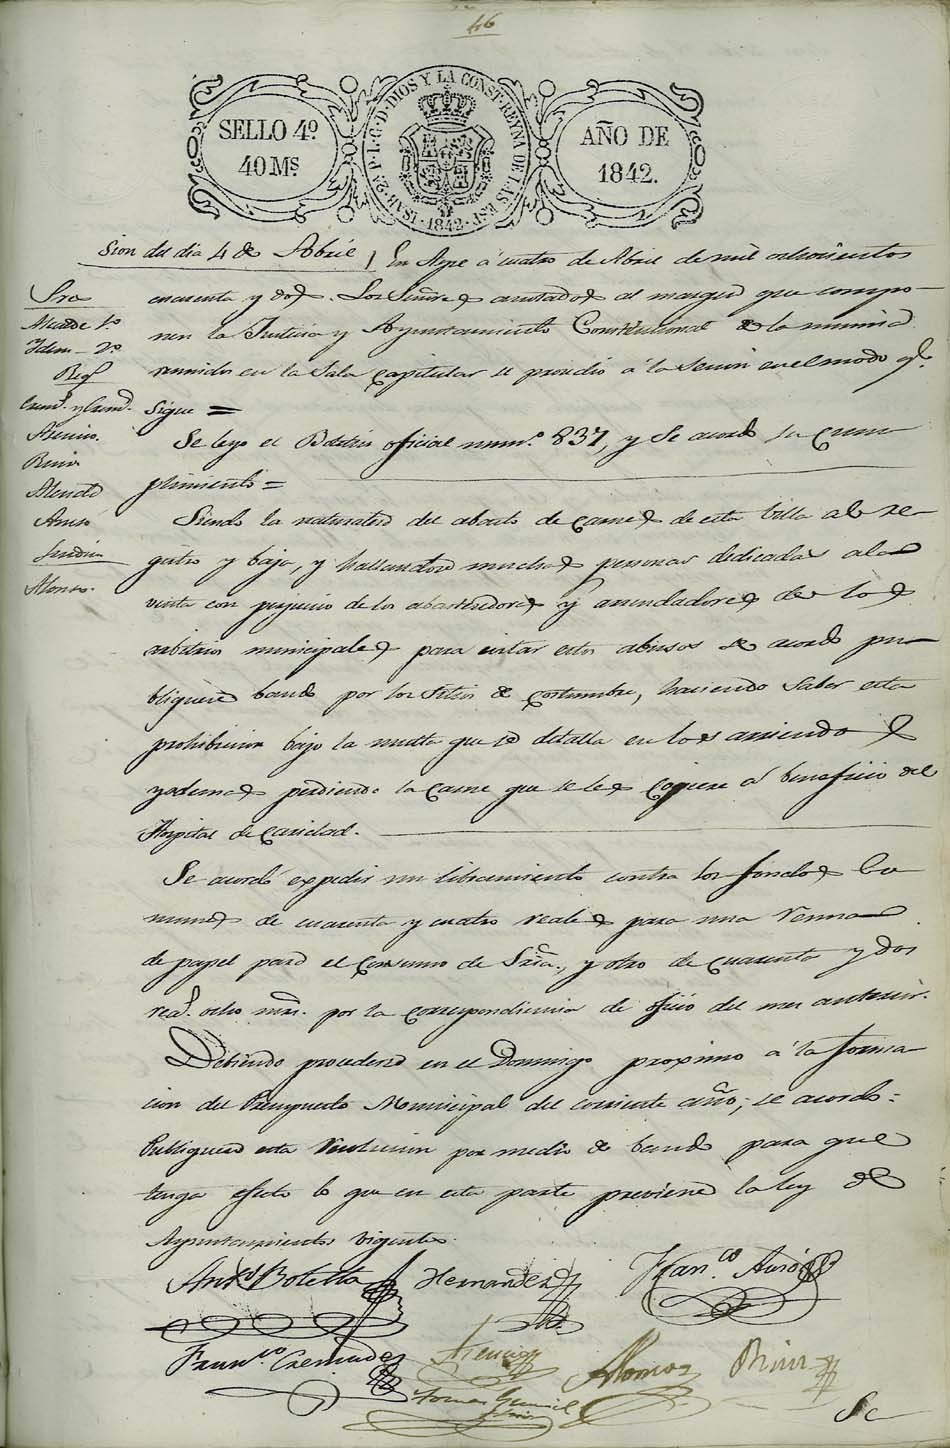 46
SELLO 4º
40 Ms.
ISAB. 2ª P. L. G. D. DIOS Y LA CONST. REYNA DE LAS ESP. 1842
AÑO DE
1842.
Sion del dia 4 de Abril
En Aspe á cuatro de Abril de mil ochocientos
cuarenta y dos. Los Señores anotados al margen que compo-
nen la Justicia y Ayuntamiento Constitucional de la misma
reunidos en la Sala capitular se procedió á la Sesion en el modo qe.
Sigue =
Sres
Alcalde 1º
Idem - 2º
Regs
Crem.s y Cremd.
Asencio.
Rivin
Almodo
Auso
Sindico
Alonso.
Se leyo el Boletin oficial num.º 837, y Se acordo su cum
plimiento =
Siendo la naturaleza del abasto de carnes de esta villa al re-
gistro y baja, y hallandose muchas personas dedicadas a la
venta con perjuicio de los abastecedores y arrendadores de los
arbitrios municipales para evitar estos abusos se acordo pu
bliquese bando por los Sitios de costumbre, haciendo saber esta
prohibicion bajo la multa que se detalla en los arriendos
y ademas perdiendo la carne que se les cogiere á beneficio del
Hospital de Caridad.
Se acordó expedir un libramiento contra los fondos Co
munes de cuarenta y cuatro reales para una resma
de papel para el consumo de Sria., y otro de cuarenta y dos
rea.s ocho mrs. por la correspondiencia de oficio del mes anterior.
Debiendo procederse en el Domingo proximo á la forma
cion del Presupuesto Municipal del corriente año; se acordo:
Publiquese esta resolucion por medio de bando para que
tenga efecto lo que en esta parte previene la ley de
Ayuntamientos vigente.
Ant.º Botella Hernandez Fran.co Auso
Fran.co Cremades Asencio Alonso
Tomas
Se